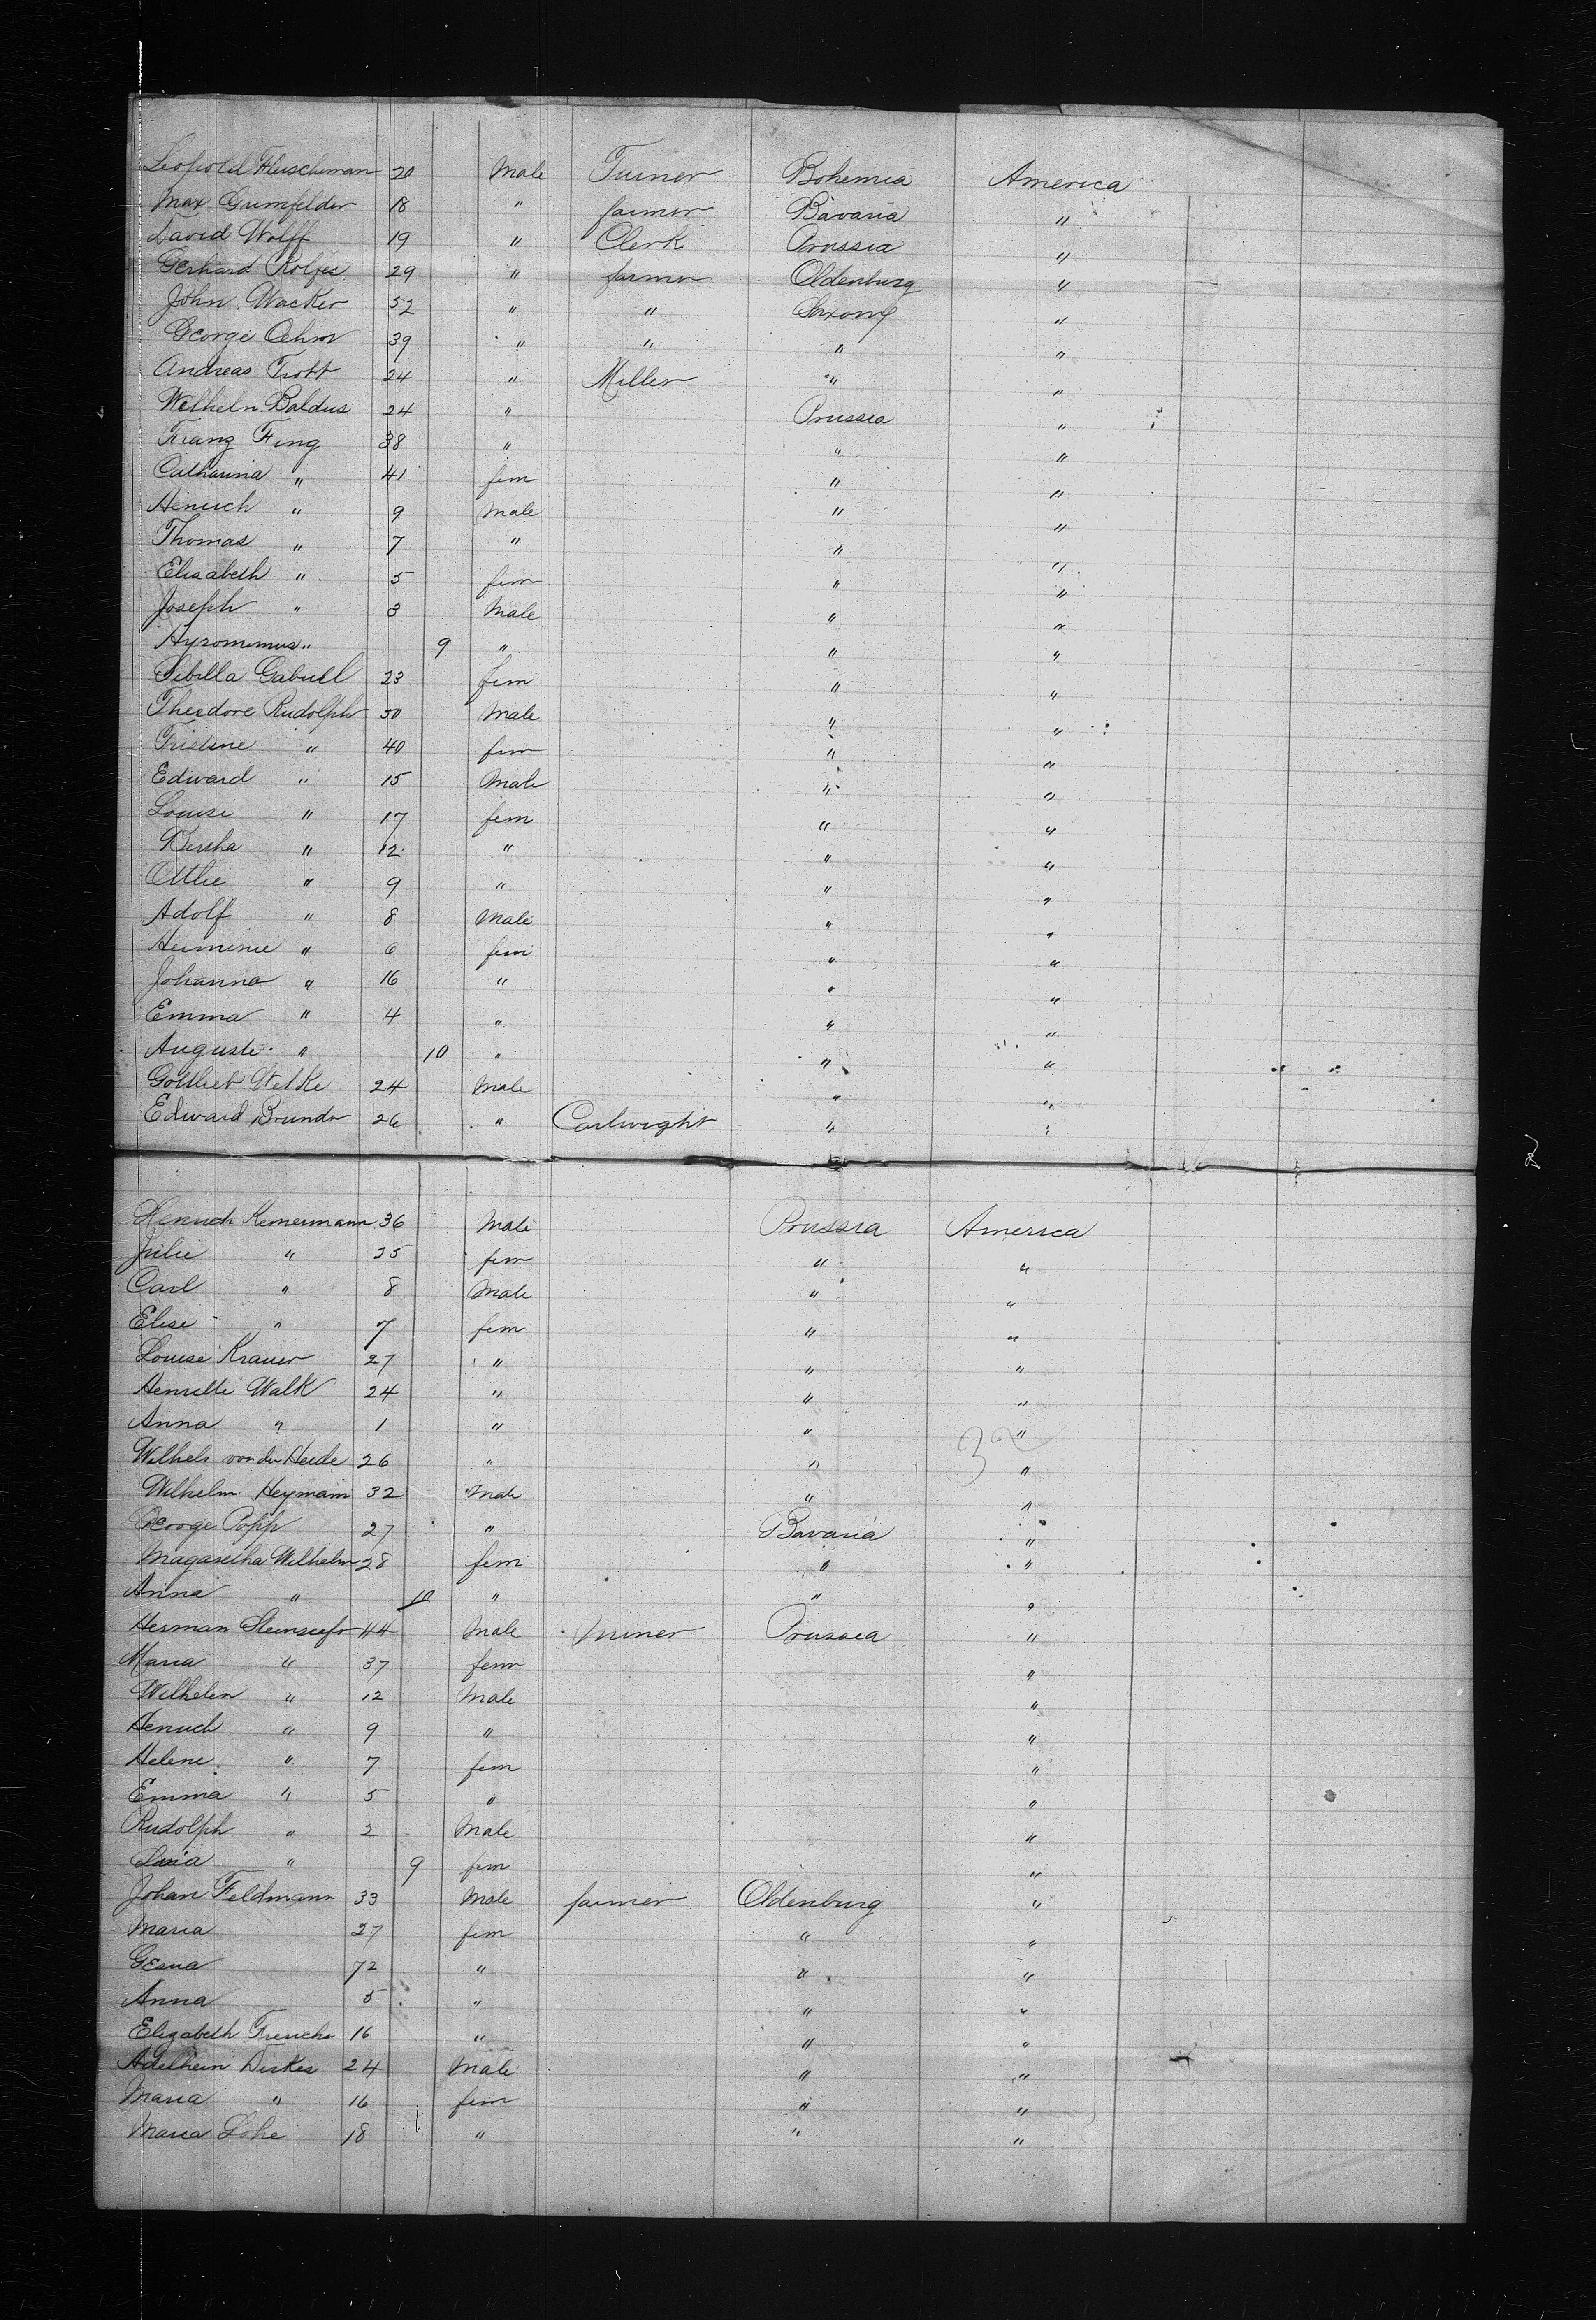 Leopold Fleischman 20 Male Turner Bohemia America
Max Grumfelder 18 " farmer Bavaria "
David Wolff 19 " Clerk Prussia "
Gerhard Rolfes 29 " farmer Oldenburg "
John Wacker 52 " " Saxony "
George Oehm 39 " " " "
Andreas Trott 24 " Miller " "
Wilhelm Baldus 24 " Prussia "
Franz Fing 38 " " "
Catharina " 41 fem " "
Heinrich " 9 Male " "
Thomas " 7 " " "
Elisabeth " 5 fem " "
Joseph " 3 Male " "
Hyronimus " 9 " " "
Sibilla Gabriel 23 fem " "
Theodore Rudolph 50 Male " "
" 40 fem " "
Edward " 15 Male " "
Louise " 17 fem " "
Bertha " 12 " " "
Ottlie " 9 " " "
Adolf " 8 Male " "
Hermine " 6 fem " "
Johanna " 16 " " "
Emma " 4 " " "
Auguste " 10 " " "
Gottlieb Welke 24 Male " "
Edward 26 " Cartwright " "
Henrich Kemermann 36 Male Prussia America
Julie " 25 fem " "
Carl " 8 Male " "
Elise " 7 fem " "
Louise Krauer 27 " " "
Henrette Walk 24 " " "
Anna " 1 " " "
von der Heide 26 " " "
Wilhelm Heymann 32 Male " "
George Popp 27 " Bavaria "
Magaretha Wilhelm 28 fem " "
Anna " 10 " " "
Herman 44 Male miner Prussia "
Maria " 37 fem "
Wilhelm " 12 Male "
Henrich " 9 " "
Helene " 7 fem "
Emma " 5 " "
Rudolph " 2 Male "
" 9 fem "
Johan Feldmann 33 Male farmer Oldenburg "
Maria 27 fem " "
Gesna 72 " " "
Anna 5 " " "
Elizabeth 16 " " "
Dirkes 24 Male " "
Maria " 16 fem " "
Maria Lohe 18 " " "